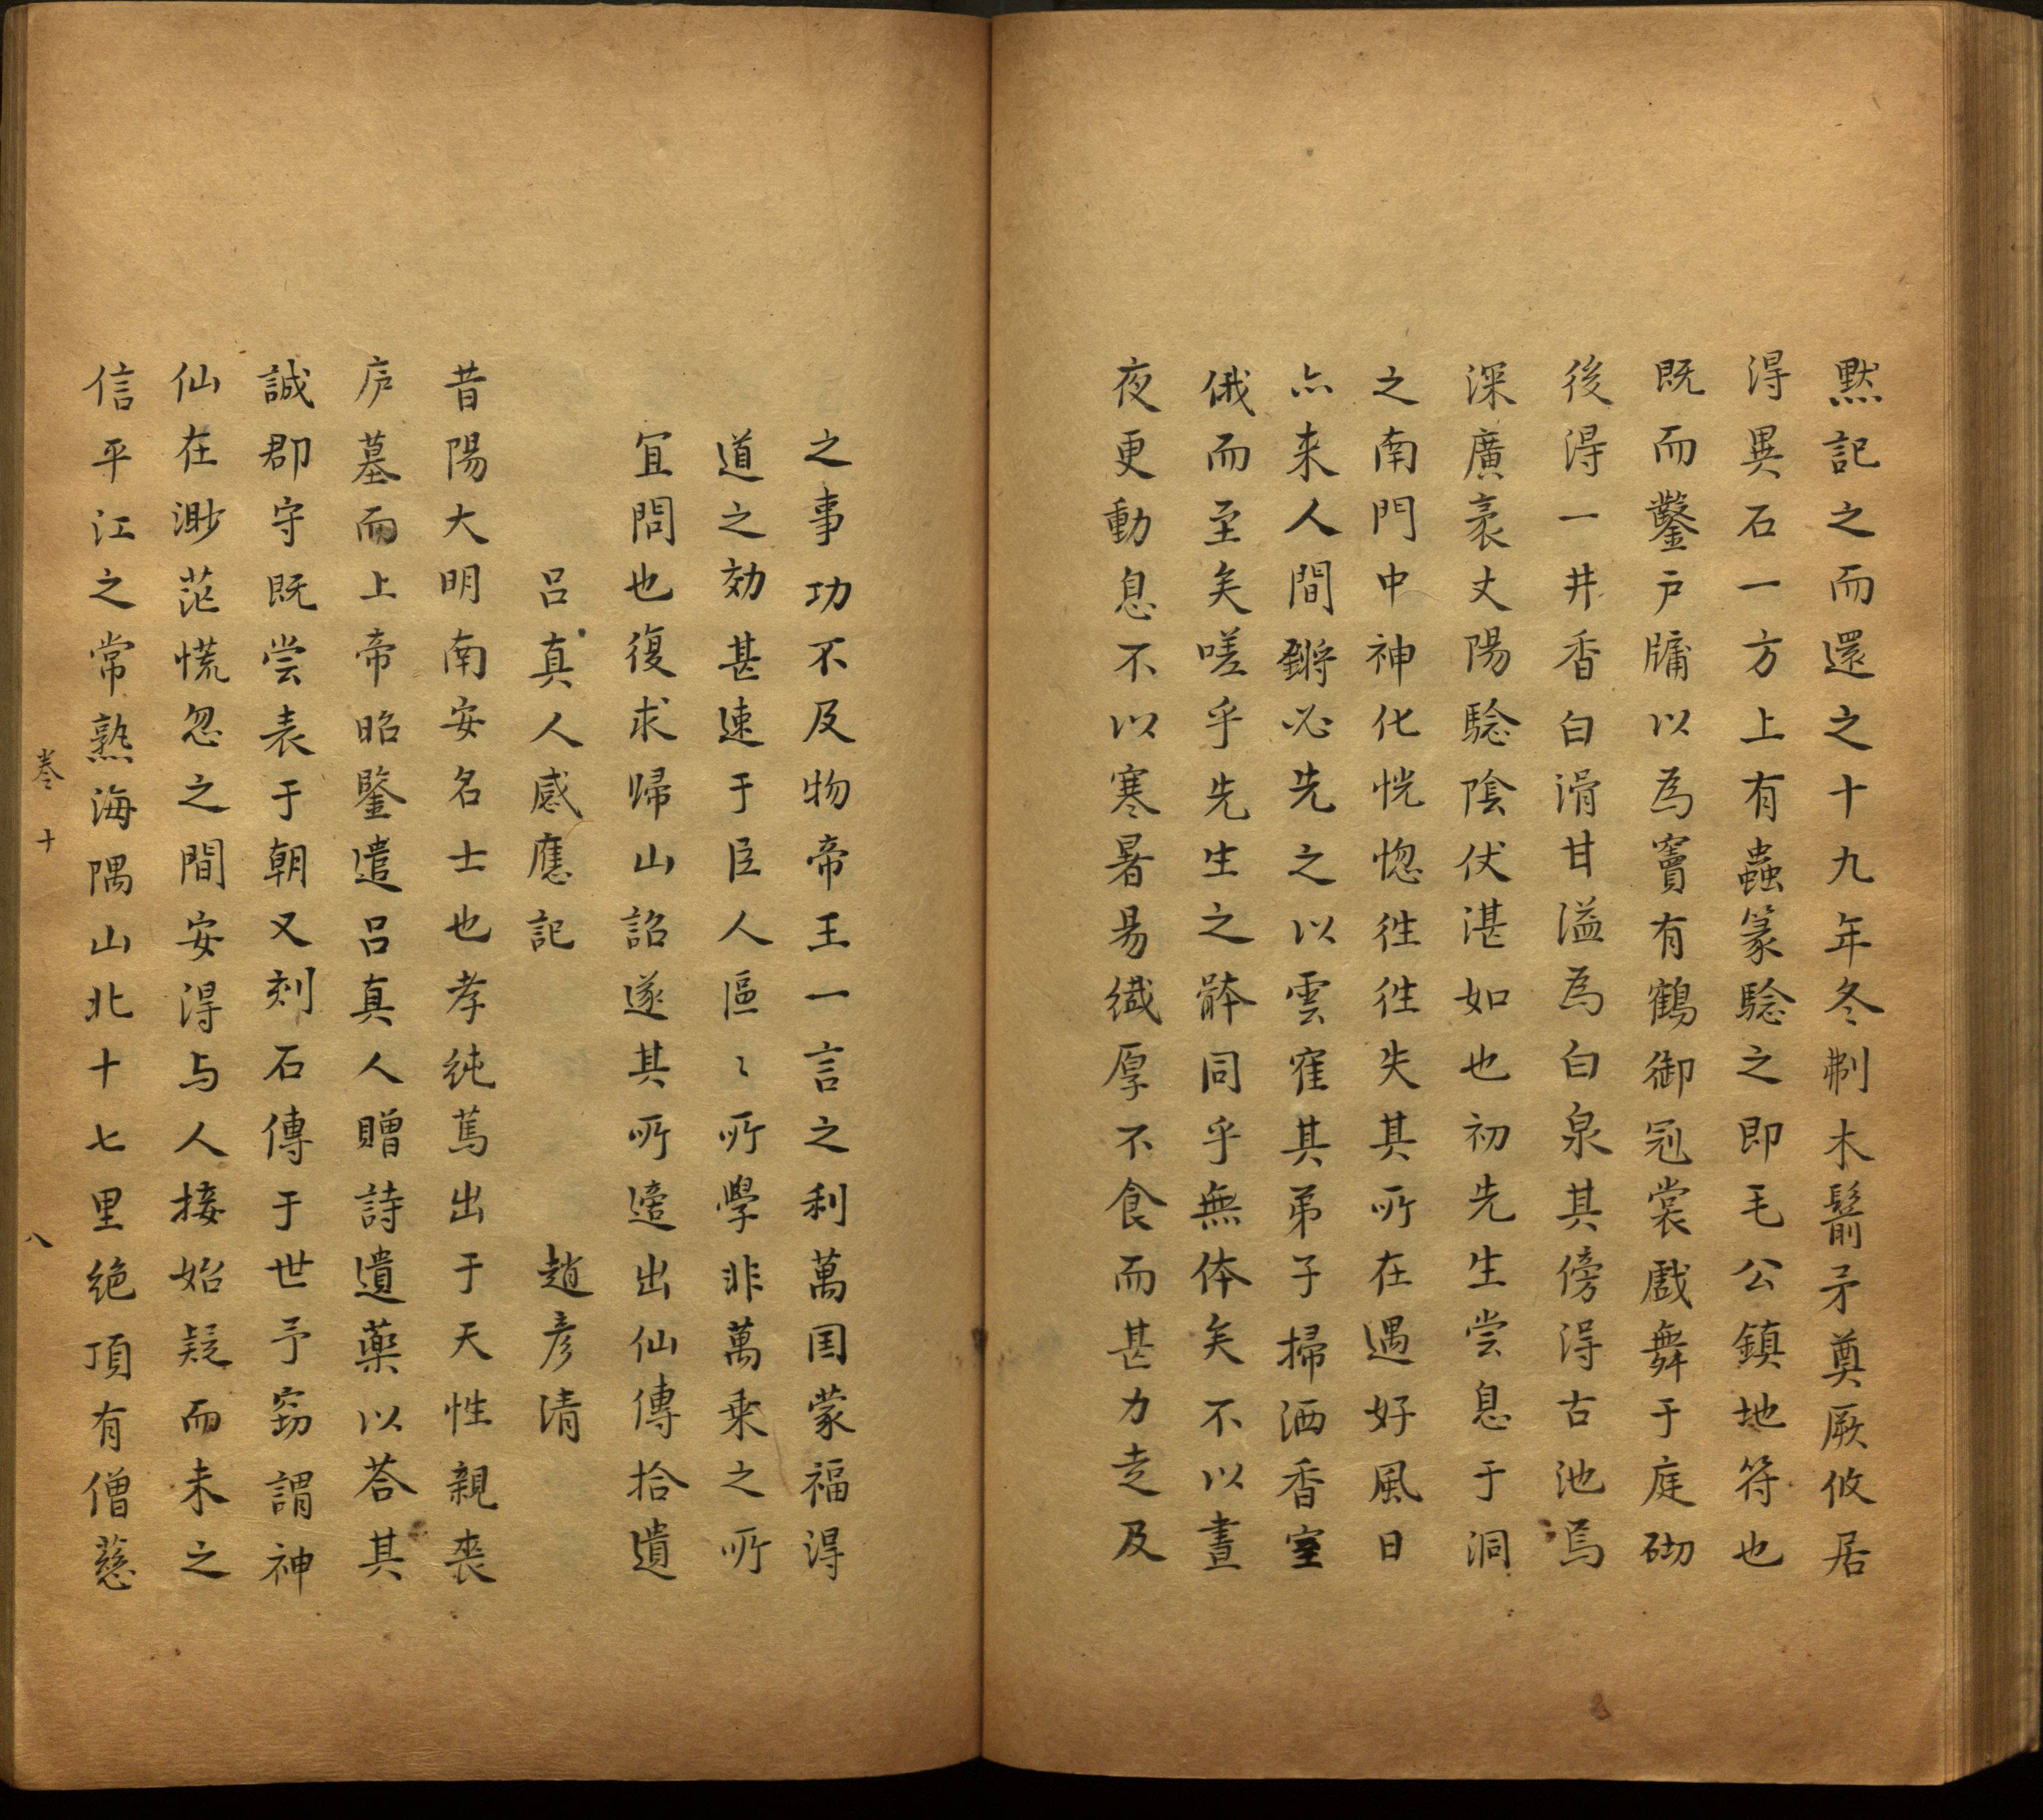 黙記之而還之十九年冬制木鬅矛奠厥攸居
淂異石一方上有蟲篆騐之即毛公鎮地符也
既而鑿戸牗以為竇有鶴御冠裳戲舞于庭砌
後淂一井香白滑甘溢為白泉其傍淂古池焉
深廣袤丈陽騐陰伏湛如也初先生尝息于洞
之南門中神化恍惚徃徃失其所在遇好風日
亦来人間鏘必先之以雲隺其弟子掃洒香室
俄而至矣嗟乎先生之骵同乎無体矣不以晝
夜更動息不以寒暑易纎厚不食而甚力走及
之事功不及物帝王一言之利萬囯蒙福淂
道之効甚速于臣人區〻所學非萬乗之所
宜問也復求歸山詔遂其所適出仙傳拾遺
吕真人感應記　趙彦清
昔陽大明南安名士也孝純篤出于天性親喪
庐墓而上帝昭鑒遣吕真人贈詩遺藥以荅其
誠郡守既尝表于朝又刻石傳于世予窃謂神
仙在渺茫慌忽之間安淂与人接始疑而未之
信平江之常熟海隅山北十七里绝頂有僧慈
卷十
八